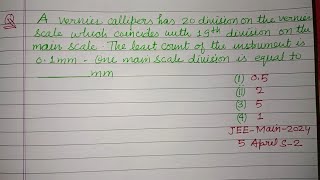 Q
A vernier callipers has 20 division on the vernier
scale which coincides with 19th division on the
main scale. The least count of the instrument is
0.1mm. One main scale division is equal to
________ mm
(1) 0.5
(2) 2
(3) 5
(4) 1
JEE-Main-2024
5 April S-2